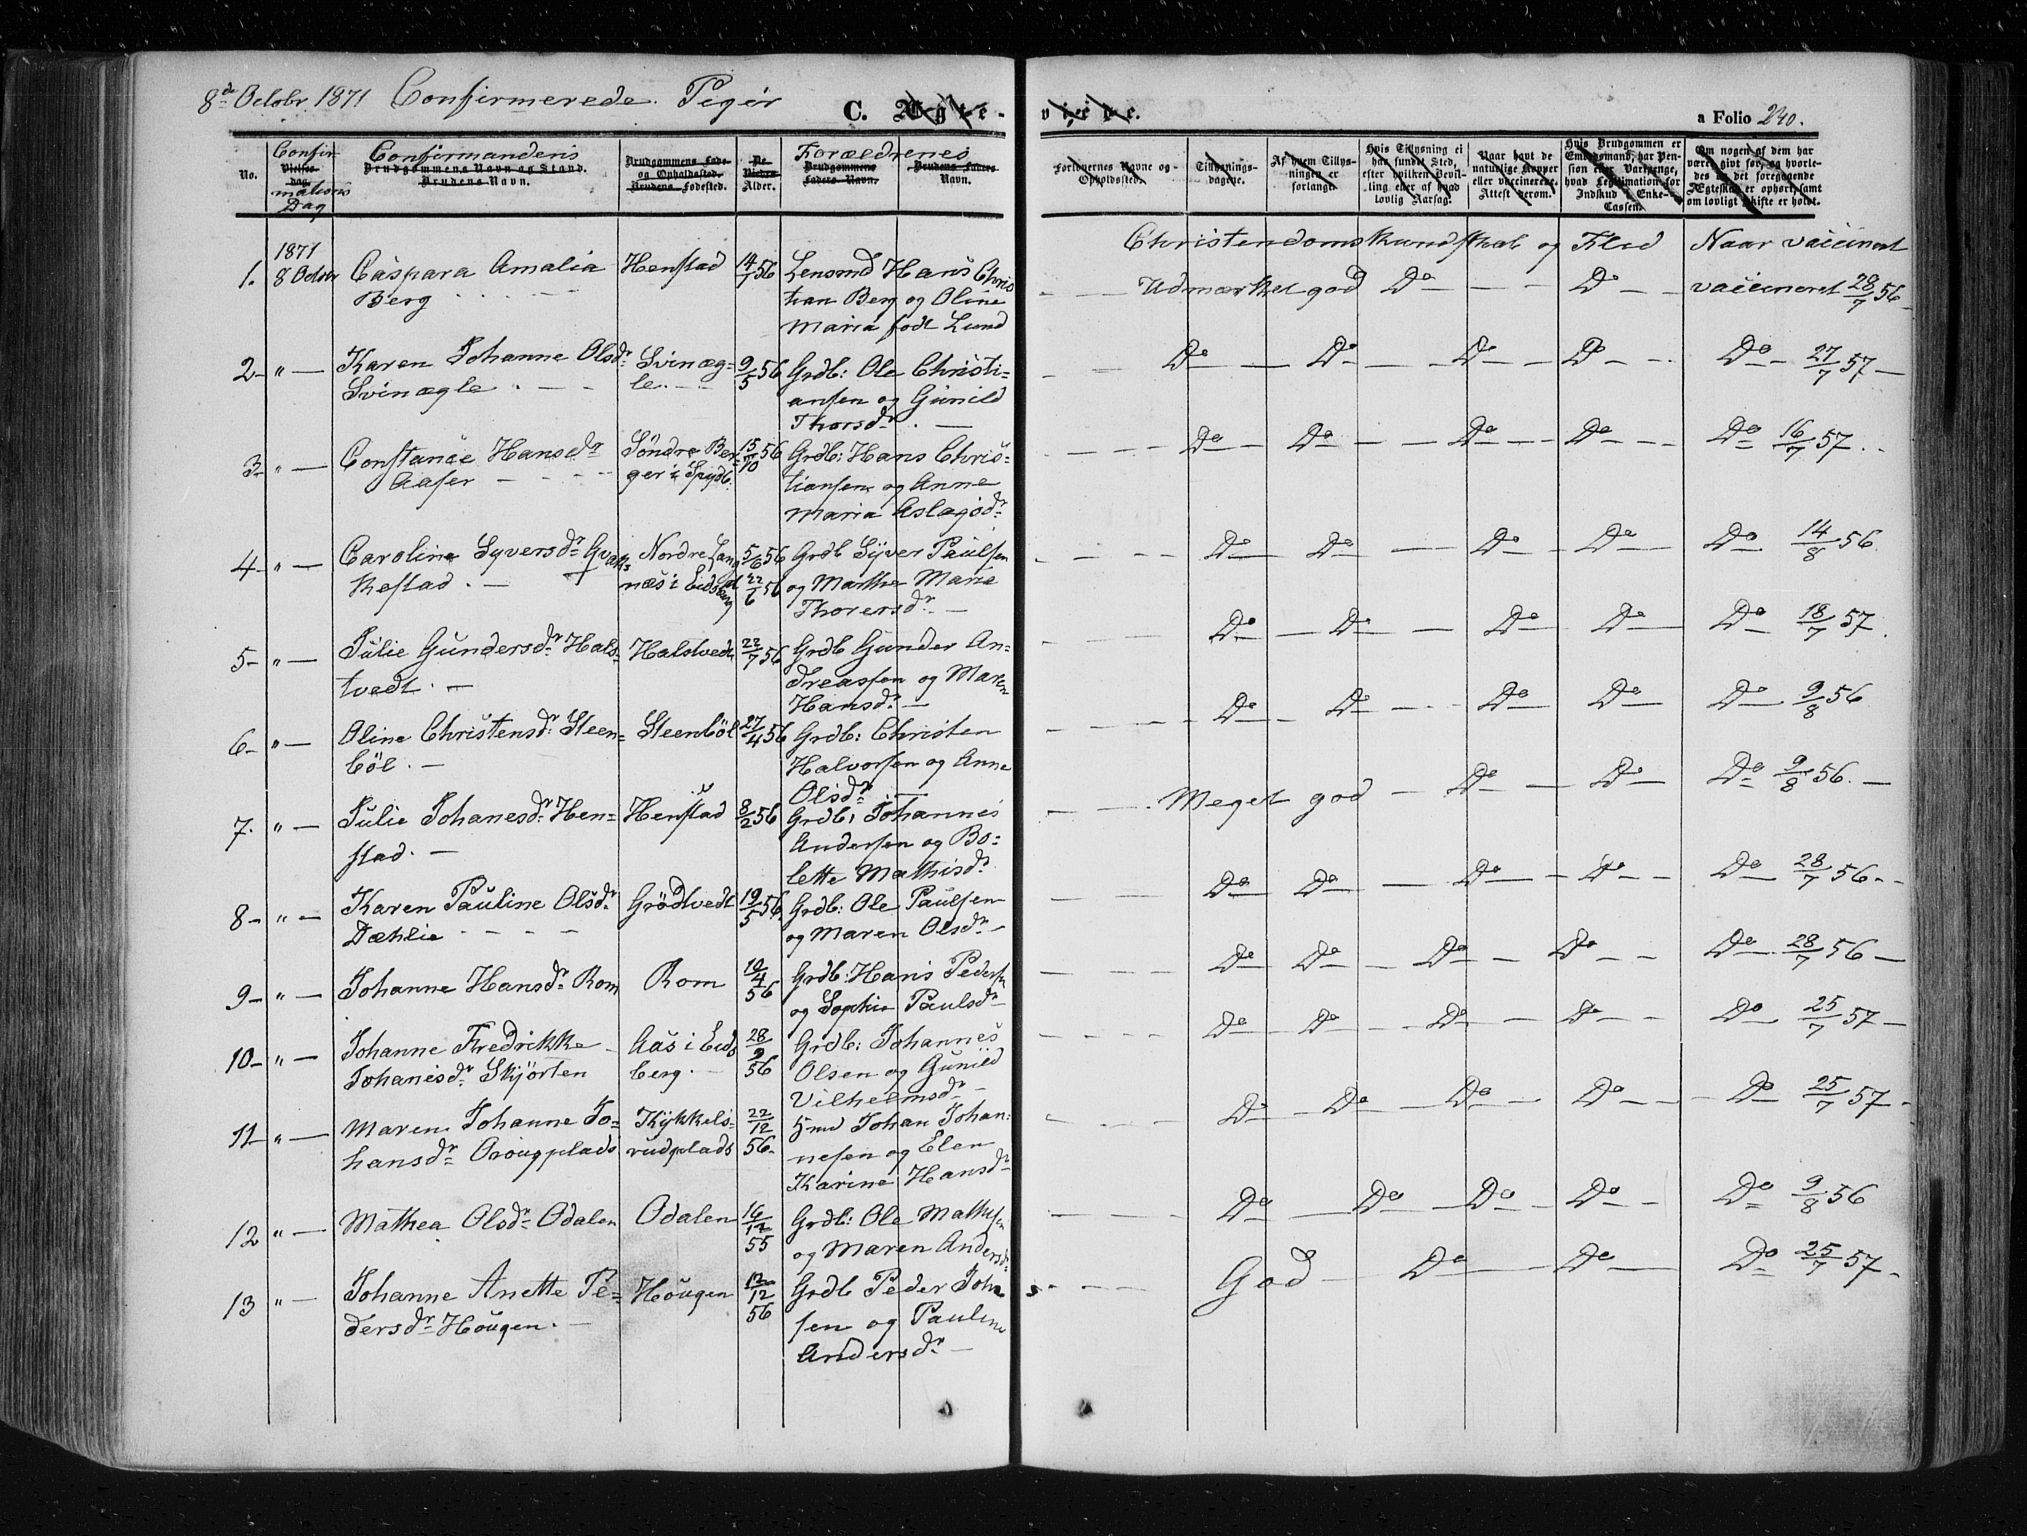 8de Octobr. 1871 Confirmerede Piger
C. Ægte-
viede.
a Folio 240.
No.
Confir-
Vielses-
dag.
mations
Dag
Confirmandens
Brudgommens Navn og Stand.
Brudens Navn.
Brudgommens Føde-
og Opholdssted.
Brudens Fødested.
De
Viedes
Alder.
Forældrenes
Brudgommens
Faders Navn.
Brudens Faders
Navn.
Forlovernes Navne og
Opholdssted.
Tillysnings-
dagene.
Af hvem Tillys-
ningen er
forlangt.
Hvis Tillysning ei
har fundet Sted,
efter hvilken Bevil-
ling eller af hvad
lovlig Aarsag.
Naar havt de
naturlige Kopper
eller vaccinerede.
Attest derom.
Hvis Brudgommen er
Embedsmand, har Pen-
sion eller Vartpenge,
hvad Legitimation for
Indskud i Enke-
Cassen.
Om nogen af dem har
været gift før, og hvorle-
des da det foregaaende
Ægteskab er ophørt, samt
om lovligt Skifte er holdt.
Christendomskundskab og Flid Naar vaccineret
1871
1. 8 Octobr Caspara Amalia Henstad 14/7 56 Lensmd Hans Chris
Berg tian Berg og Oline
Maria født Lund
Udmærket god Do Do vaccineret 28/7 56
2 " Karen Johanne Olsdr Svinæg- 9/5 56 Grdb: Ole Christi-
Svinægle le. ansen og Gunild
Thorsdr.
Do Do Do Do Do 27/7 57
3 " Constance Hansdr Søndre Ber- 15/10 56 Grdb: Hans Chris-
Aaser ger i Spydb. tiansen og Anne
Maria Aslagsdr
Do Do Do Do Do 16/7 57
4 " Caroline Syversdr Gvak- Nordre Lang 5/6 56 Grdb Syver Paulsen
kestad næs i Eidsberg 22/6 56 og Marthe Marie
Thorersdr
Do Do Do Do Do 14/8 56
5 " Julie Gundersdr Hals- Halstvedt 22/7 56 Grdb Gunder An-
tvedt dreassen og Maren
Hansdr
Do Do Do Do Do 18/7 57
6 " Oline Christensdr Steen- Steenböl 27/4 56 Grdb: Christen
böl Halvorsen og Anne
Olsdr
Do Do Do Do Do 9/8 56
7. " Julie Johanesdr Hen- Henstad 8/2 56 Grdb: Johannes
stad Andersen og Bo-
lette Mathisdr
Meget god Do Do Do 9/8 56
8 " Karen Pauline Olsdr Grödtvedt 19/5 56 Grdb: Ole Paulsen
Dæhlie og Maren Olsdr
Do Do Do Do Do 28/7 56
9 " Johanne Hansdr Rom Rom 10/4 56 Grdb: Hans Pedersen
og Sophie Paulsdr
Do Do Do Do Do 28/7 56
10 " Johanne Fredrikke Aas i Eids 28/9 56 Grdb: Johannes
Johanesdr Skjørten berg. Olsen og Gunild
Vilhelmsdr
Do Do Do Do Do 25/7 57
11 " Maren Johanne Jo- Kykkels- 22/12 56 Hmd Johan Johan-
hansdr plads rudplads nesen og Elen
Karine Hansdr
Do Do Do Do Do 25/7 57
12 " Mathea Olsdr Odalen Odalen 16/12 55 Grdb: Ole Mathisen
og Maren Andersdr
Do Do Do Do Do 9/8 56
13 " Johanne Anette Pe- Hougen 12/12 56 Grdb Peder Johan
dersdr Hougen. sen og Pauline
Andersdr
God Do Do Do 25/7 57